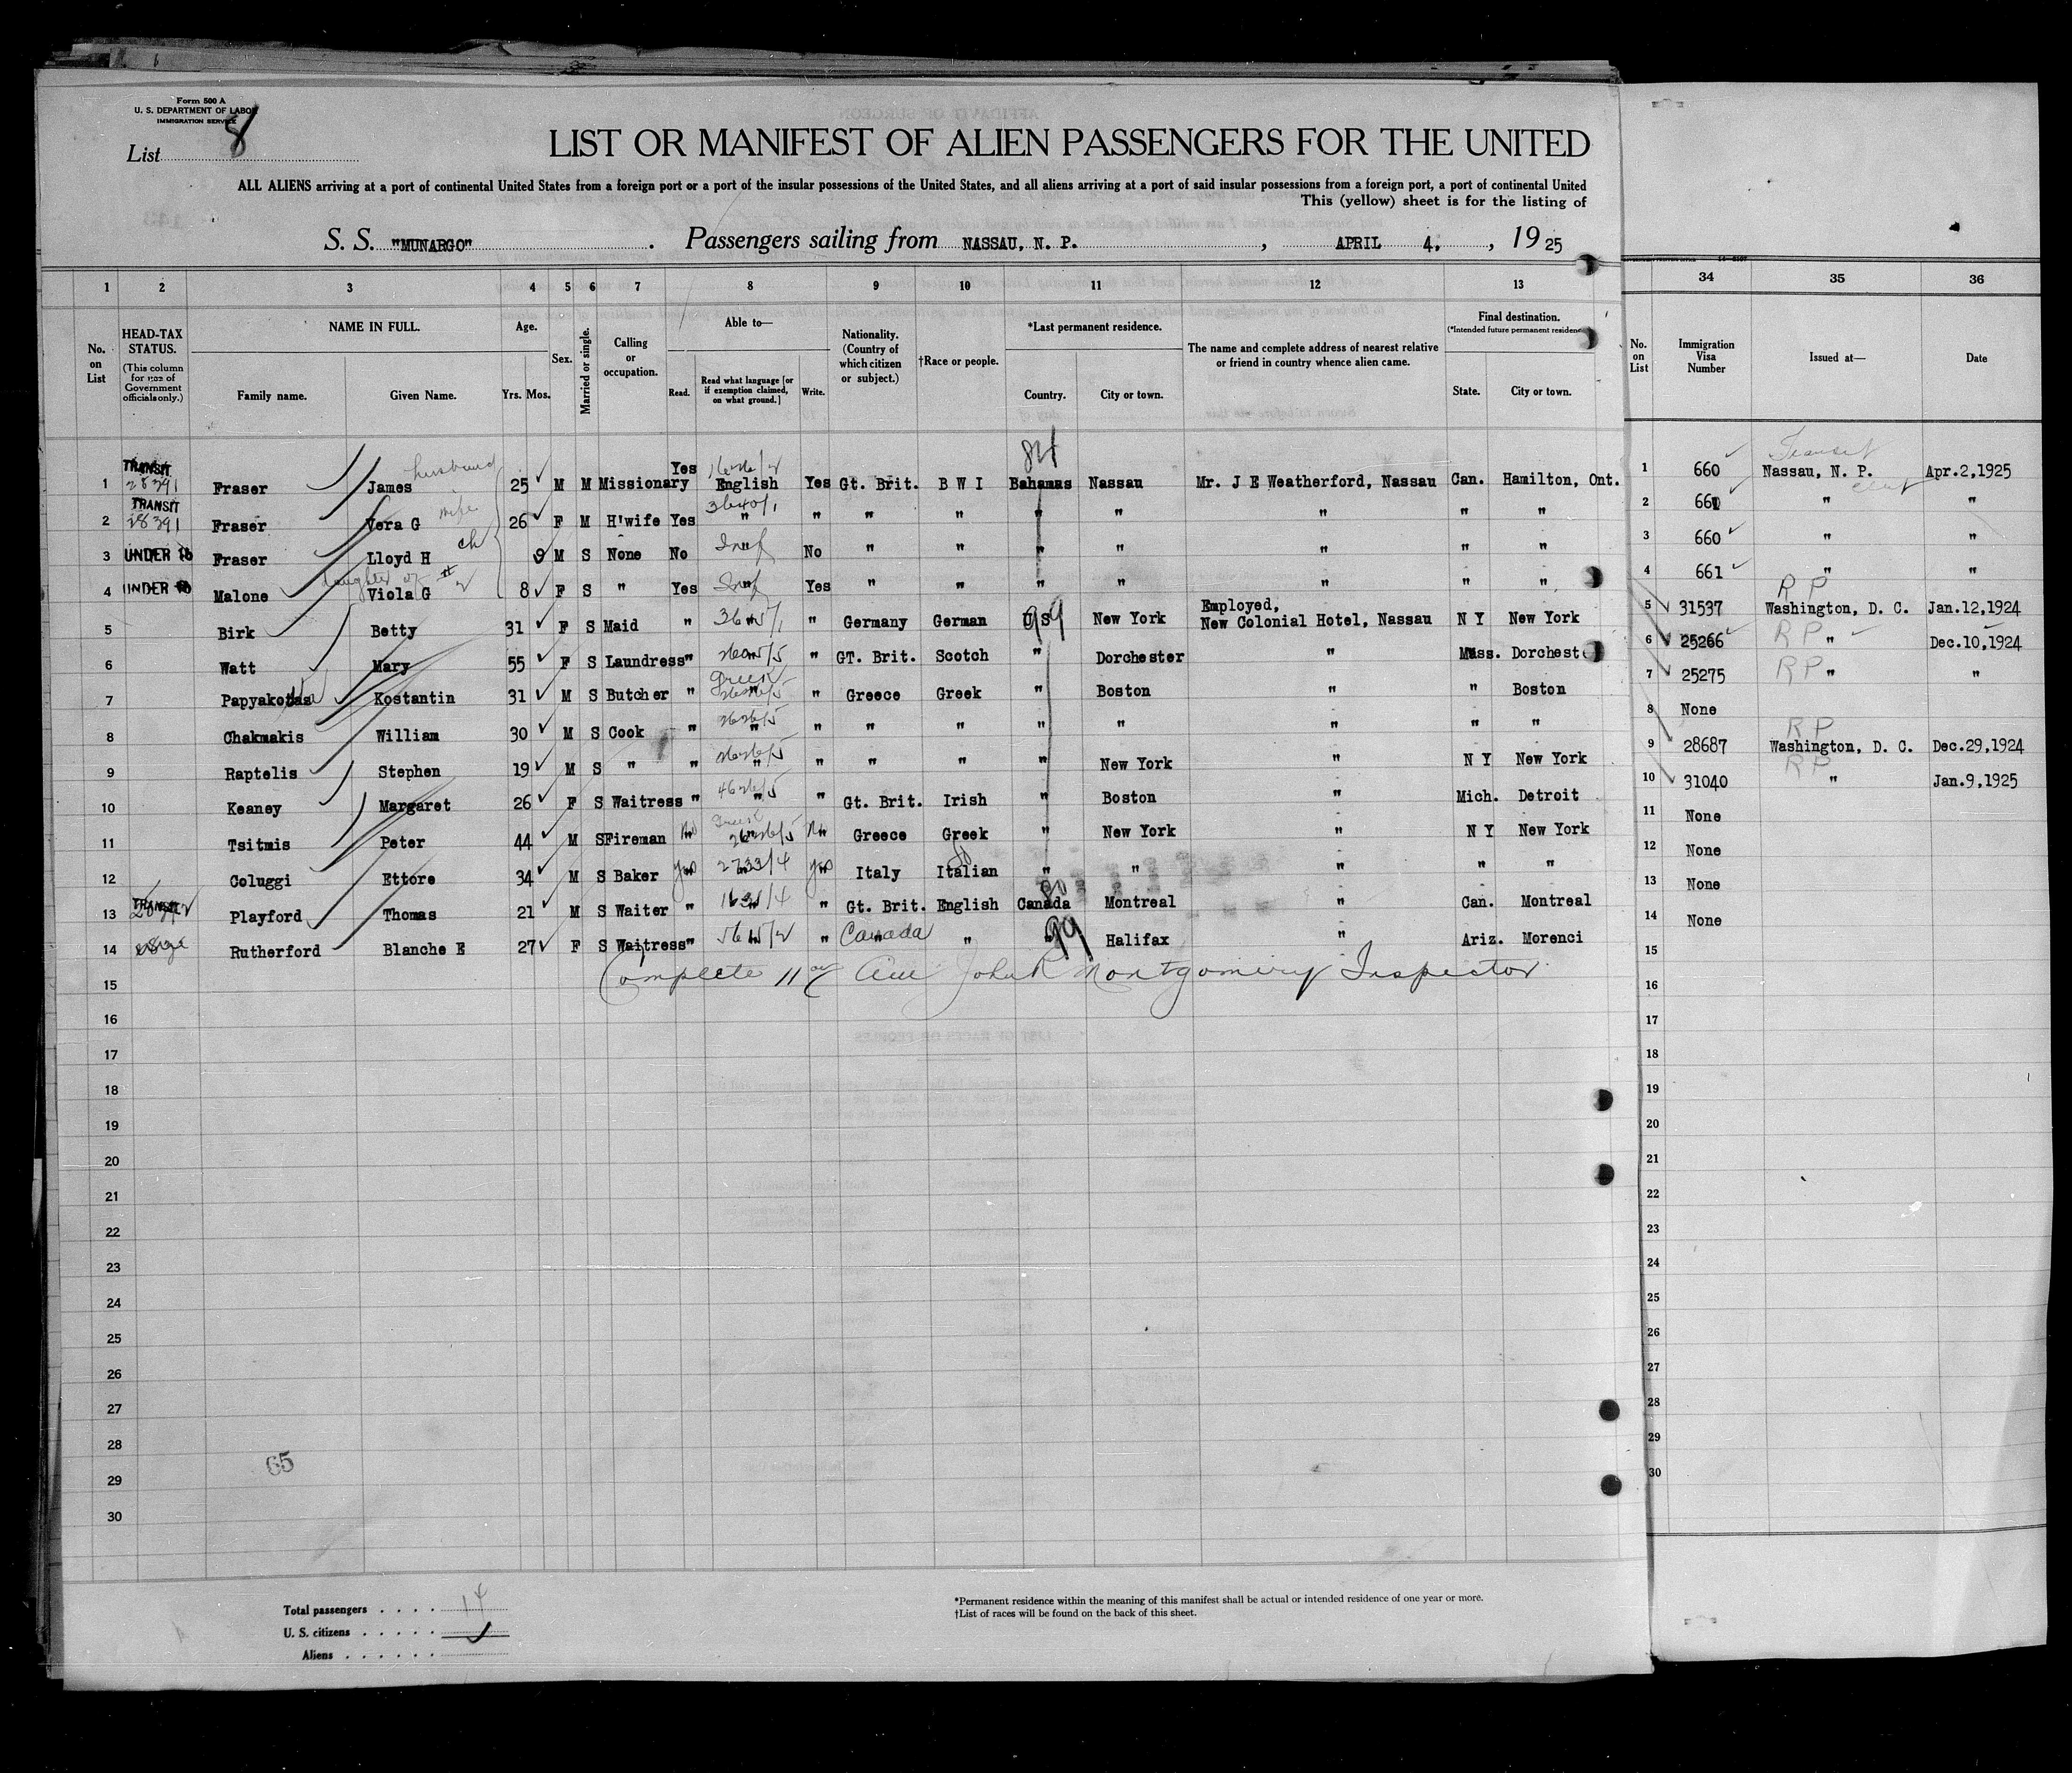 Form 500 A
U. S. DEPARTMENT OF LABOR
IMMIGRATION SERVICE
List 8
LIST OR MANIFEST OF ALIEN PASSENGERS FOR THE UNITED
ALL ALIENS arriving at a port of continental United States from a foreign port or a port of the insular possessions of the United States, and all aliens arriving at a port of said insular possessions from a foreign port, a port of continental United
This (yellow) sheet is for the listing of
S. S. "MUNARGO" . Passengers sailing from NASSAU, N. P. , APRIL 4, , 19 25
1 2 3 4 5 6 7 8 9 10 11 12 13 34 35 36
No. on List
HEAD-TAX STATUS. (This column for use of Government officials only.)
NAME IN FULL. Family name. Given Name.
Age. Yrs. Mos.
Sex.
Married or single.
Calling or occupation.
Able to— Read. Read what language [or if exemption claimed, on what ground.] Write.
Nationality. (Country of which citizen or subject.)
†Race or people.
*Last permanent residence. Country. City or town.
The name and complete address of nearest relative or friend in country whence alien came.
Final destination. (*Intended future permanent residence) State. City or town.
No. on List
Immigration Visa Number
Issued at—
Date
84 Transit
1 TRANSIT 28391 Fraser James husband 25 M M Missionary Yes English Yes Gt. Brit. B W I Bahamas Nassau Mr. J E Weatherford, Nassau Can. Hamilton, Ont. 1 660 Nassau, N. P. Apr.2,1925
2 TRANSIT 28391 Fraser Vera G wife 26 F M H'wife Yes 3640/1 " " " " " " " " " 2 661 " "
3 UNDER 16 Fraser Lloyd H ch 9 M S None No Inf No " " " " " " " 3 660 " "
4 UNDER 16 Malone daughter of # 2 Viola G 8 F S " Yes Inf Yes " " " " " " " 4 661 " "
5 Birk Betty 31 F S Maid " " " Germany German U S 99 New York Employed, New Colonial Hotel, Nassau N Y New York 5 31537 R P Washington, D. C. Jan.12,1924
6 Watt Mary 55 F S Laundress " " " GT. Brit. Scotch " Dorchester " Mass. Dorchest 6 25266 R P " Dec.10,1924
7 Papyakotas Kostantin 31 M S Butcher " Greek " Greece Greek " Boston " " Boston 7 25275 R P " "
8 Chakmakis William 30 M S Cook " " " " " " " " " " 8 None
9 Raptelis Stephen 19 M S " " " " " " " New York " N Y New York 9 28687 R P Washington, D. C. Dec.29,1924
10 Keaney Margaret 26 F S Waitress " " " Gt. Brit. Irish " Boston " Mich. Detroit 10 31040 R P " Jan.9,1925
11 Tsitmis Peter 44 M S Fireman No Greek No Greece Greek " New York " N Y New York 11 None
12 Coluggi Ettore 34 M S Baker yes 2733/4 yes Italy Italian " " " " " 12 None
13 TRANSIT Playford Thomas 21 M S Waiter " " " Gt. Brit. English Canada Montreal " Can. Montreal 13 None
14 Rutherford Blanche E 27 F S Waitress " " " Canada " " 99 Halifax " Ariz. Morenci 14 None
15 Complete John R Montgomery Inspector 15
16 16
17 17
18 18
19 19
20 20
21 21
22 22
23 23
24 24
25 25
26 26
27 27
28 28
29 65 29
30 30
Total passengers . . . . 14
U. S. citizens . . . . .
Aliens . . . . . .
*Permanent residence within the meaning of this manifest shall be actual or intended residence of one year or more.
†List of races will be found on the back of this sheet.